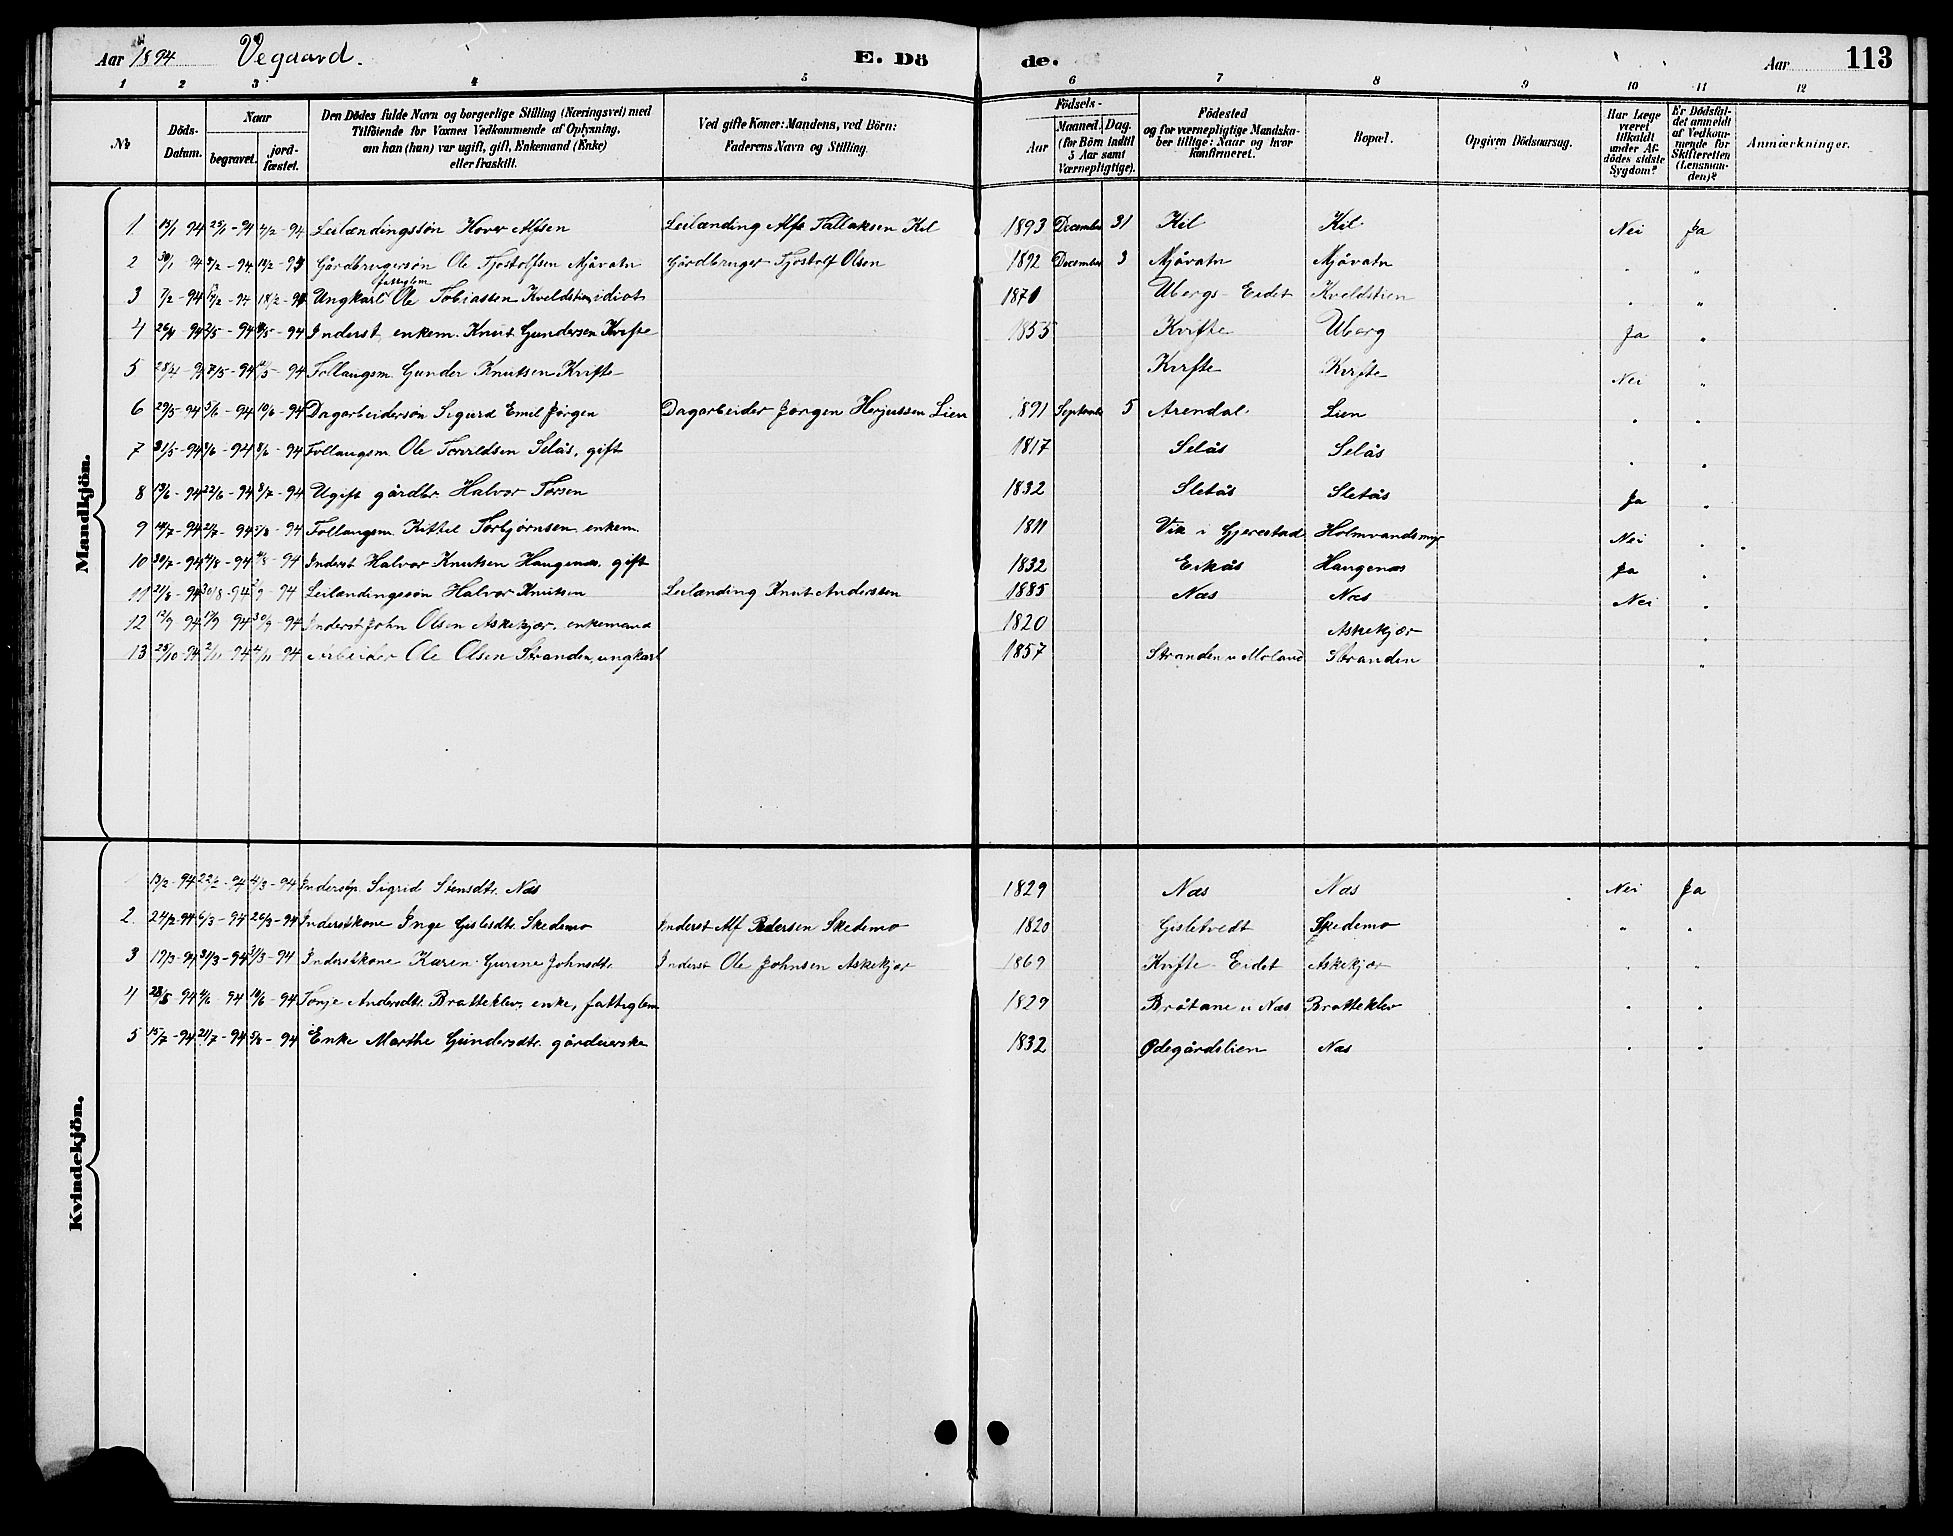 Aar 1894 Vegaard. E. Dö de. Aar 113
1 2 3 4 5 6 7 8 9 10 11 12
No Döds-Datum. Naar begravet. jord-fæstet. Den Dödes fulde Navn og borgerlige Stilling (Næringsvei) med Tilföiende for Voxnes Vedkommende af Oplysning, om han (hun) var ugift, gift, Enkemand (Enke) eller fraskilt. Ved gifte Koner: Mandens, ved Börn: Faderens Navn og Stilling. Födsels- Aar Maaned. Dag. (for Börn indtil 5 Aar samt Værnepligtige). Födested og for værnepligtige Mandskaber tillige: Naar og hvor konfirmeret. Bopæl. Opgiven Dödsaarsag. Har Læge været tilkaldt under Afdödes sidste Sygdom? Er Dödsfaldet anmeldt af Vedkommende for Skifteretten (Lensmanden)? Anmærkninger.
Mandkjön.
1 15/1 94 25/1-94 4/2-94 Leilændingssön Hover Alfsen Leilænding Alf Tallaksen Kil 1893 December 31 Kil Kil Nei Ja
2 30/1 94 8/2-94 18/2-94 Gårdbrugersön Ole Tjostolfsen Mjåvatn Gårdbruger Tjostolf Olsen 1892 December 3 Mjåvatn Mjåvatn " "
3 7/2-94 17/2-94 18/2-94 Ungkarl fattiglem Ole Tobiassen Kveldstien idiot 1871 Ubergs-Eidet Kveldstien " "
4 26/4-94 2/5-94 /5-94 Inderst, enkem. Knut Gundersen Kvifte 1855 Kvifte Uberg Ja "
5 28/4-94 7/5-94 /5-94 Follaugsm. Gunder Knutsen Kvifte Kvifte Kvifte Nei "
6 29/5-94 5/6-94 10/6-94 Dagarbeidersön Sigurd Emil Jørgen Dagarbeider Jørgen Herjussen Lien 1891 September 5 Arendal Lien " "
7 31/5-94 8/6-94 8/6-94 Follaugsm. Ole Torvildsen Selås, gift 1817 Selås Selås " "
8 13/6-94 22/6-94 8/7-94 Ugift gårdbr. Halvor Torsen 1832 Sletås Sletås Ja "
9 18/7-94 2/7-94 5/8-94 Follaugsm. Kittel Torbjørnsen enkem. 1811 Vik i Gjerestad Holmvandsmyr Nei "
10 30/7-94 4/8-94 /8-94 Inderst Halvor Knutsen Haugenæs. gift 1832 Eikås Haugenæs Ja "
11 21/8-94 30/8-94 2/9-94 Leilændingssön Halvor Knutsen Leilænding Knut Anderssen 1885 Næs Næs Nei "
12 12/9 94 17/9 94 30/9-94 Inderst John Olsen Askekjær, enkemand 1820 Askekjær "
13 25/10-94 2/11 94 4/11 94 Arbeider Ole Olsen Stranden, ungkarl 1857 Stranden u Moland Stranden "
Kvindekjön.
13/2-94 22/2-94 4/3-94 Inderstp. Sigrid Stensdtr. Næs 1829 Næs Næs Nei Ja
2. 24/2-94 6/3-94 26/3-94 Inderstkone Inge Gislesdtr. Skedemo Inderst Alf Pedersen Skedemo 1820 Gisletvedt Skedemo " "
3 19/3-94 31/3-94 31/3-94 Inderstkone Karen Gurine Johnsdtr. Inderst Ole Johnsen Askekjær 1869 Kvifte-Eidet Askekjær " "
4 28/5-94 4/6-94 10/6-94 Tonje Andersdtr. Bratteklev, enke, fattiglem 1829 Bråtane u Næs Bratteklev " "
5 15/7-94 21/7-94 5/8-94 Enke Marthe Gundersdtr. gårdeierske 1832 Ødegårdslien Næs " "